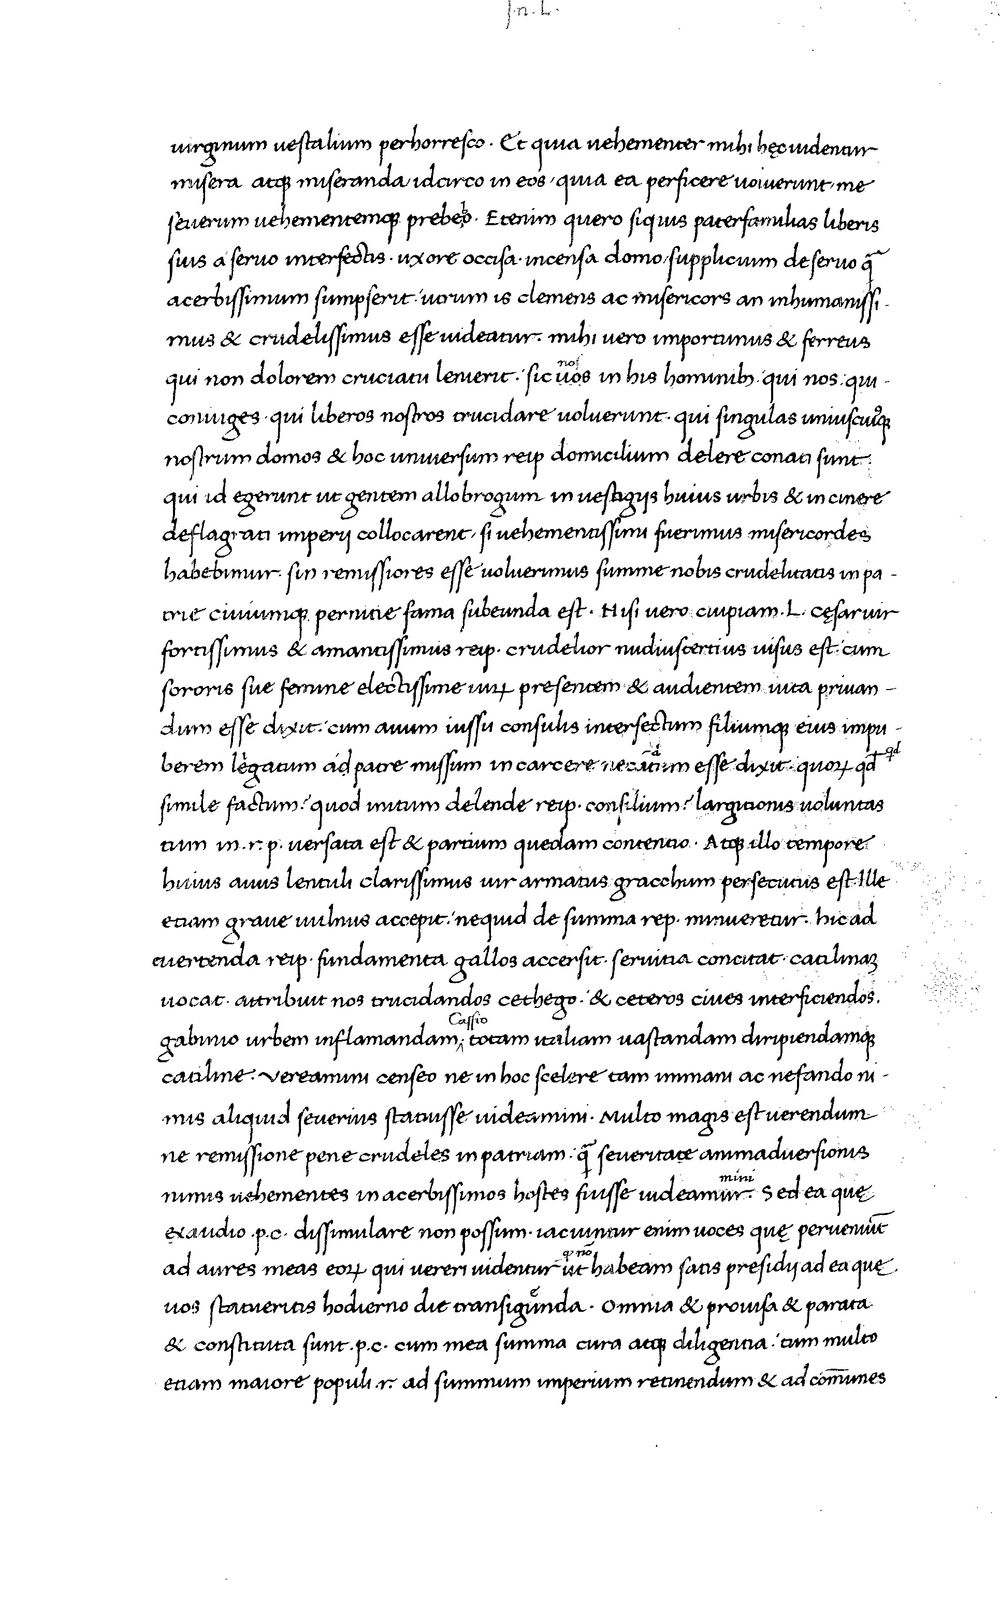 In. L.
uirginum uestalium perhorresco. Et quia uehementer mihi hęc uidentur
misera atq; miseranda idcirco in eos quia ea perficere uoluerunt me
seuerum uehementemq; prebeo. Etenim quero siquis paterfamilias liberis
suis a seruo interfectis. uxore occisa. incensa domo, supplicium de seruo q̃
acerbissimum sumpserit. utrum is clemens ac misericors an inhumanissi-
mus & crudelissimus esse uideatur. mihi uero importunus & ferreus
qui non dolorem cruciatu lenierit. sic uos nos in his hominib; qui nos. qui -
coniuges. qui liberos nostros trucidare uoluerunt. qui singulas uniuscuiusq;
nostrum domos & hoc uniuersum reip domicilium delere conati sunt.
qui id egerunt ut gentem allobrogum in uestigijs huius urbis & in cinere
deflagrati imperij collocarent, si uehementissimi fuerimus misericordes
habebimur. sin remissiores esse uoluerimus summe nobis crudelitatis in pa -
trie ciuiumq; pernitie fama subeunda est. Nisi uero cuipiam. L. Cęsar uir
fortissimus & amantissimus reip. crudelior nudiustertius uisus est. cum
sororis sue femine electissime uirꝝ presentem & audientem uita priuan -
dum esse dixit. cum auum iussu consulis interfectum filiumq; eius impu -
berem legatum ad patre missum in carcere necatum esse dixit. quoꝝ qd qd
simile factum? quod initum delende reip. consilium? largitionis uoluntas
tum in. r. p. uersata est & partium quedam contentio. Atq; illo tempore
huius auus lentuli clarissimus uir armatus gracchum persecutus est. Ille
etiam graue uulnus accepit. nequid de summa rep. minueretur. hic ad
euertenda reip. fundamenta gallos accersit. seruitia concitat. catilinaʒ
uocat. attribuit nos trucidandos cethego. & ceteros ciues interficiendos.
gabinio urbem inflamandam, Cassio totam italiam uastandam diripiendamq;
catiline. Vereamini censeo ne in hoc scelere tam immani ac nefando ni -
mis aliquid seuerius statuisse uideamini. Multo magis est uerendum
ne remissione pene crudeles in patriam. q̃ seueritate animaduersionis
nimis uehementes in acerbissimos hostes fuisse uideamur mini. Sed ea quę
exaudio. p.c. dissimulare non possum. iaciuntur enim uoces quę perueniũt
ad aures meas eoꝝ qui uereri uidentur ut habeam satis presidij ad ea quę
uos statueritis hodierno die transigunda. Omnia & prouisa & parata
& constituta sunt. p.c. cum mea summa cura atq; diligentia. tum multo
etiam maiore populi. r. ad summum imperium retinendum & ad com̄unes